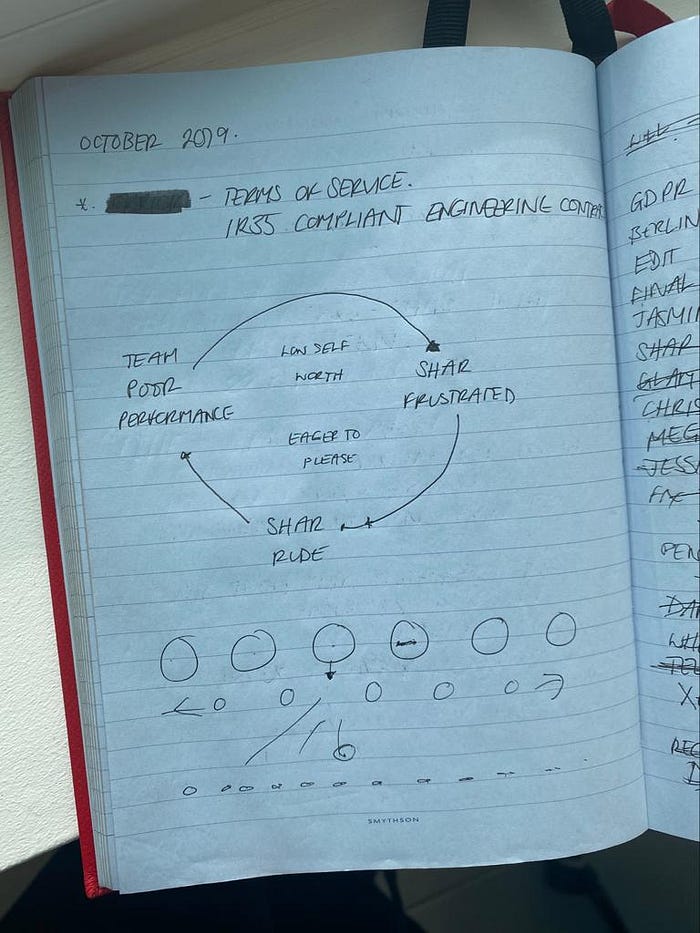 OCTOBER 2019.
*. - TERMS OF SERVICE.
IR35 COMPLIANT ENGINEERING
TEAM
POOR
PERFORMANCE
LOW SELF
WORTH
SHAR
FRUSTRATED
EAGER TO
PLEASE
SHAR
RUDE
SMYTHSON
GDPR
BERLIN
EDIT
FINAL
SHAR
CHRIS